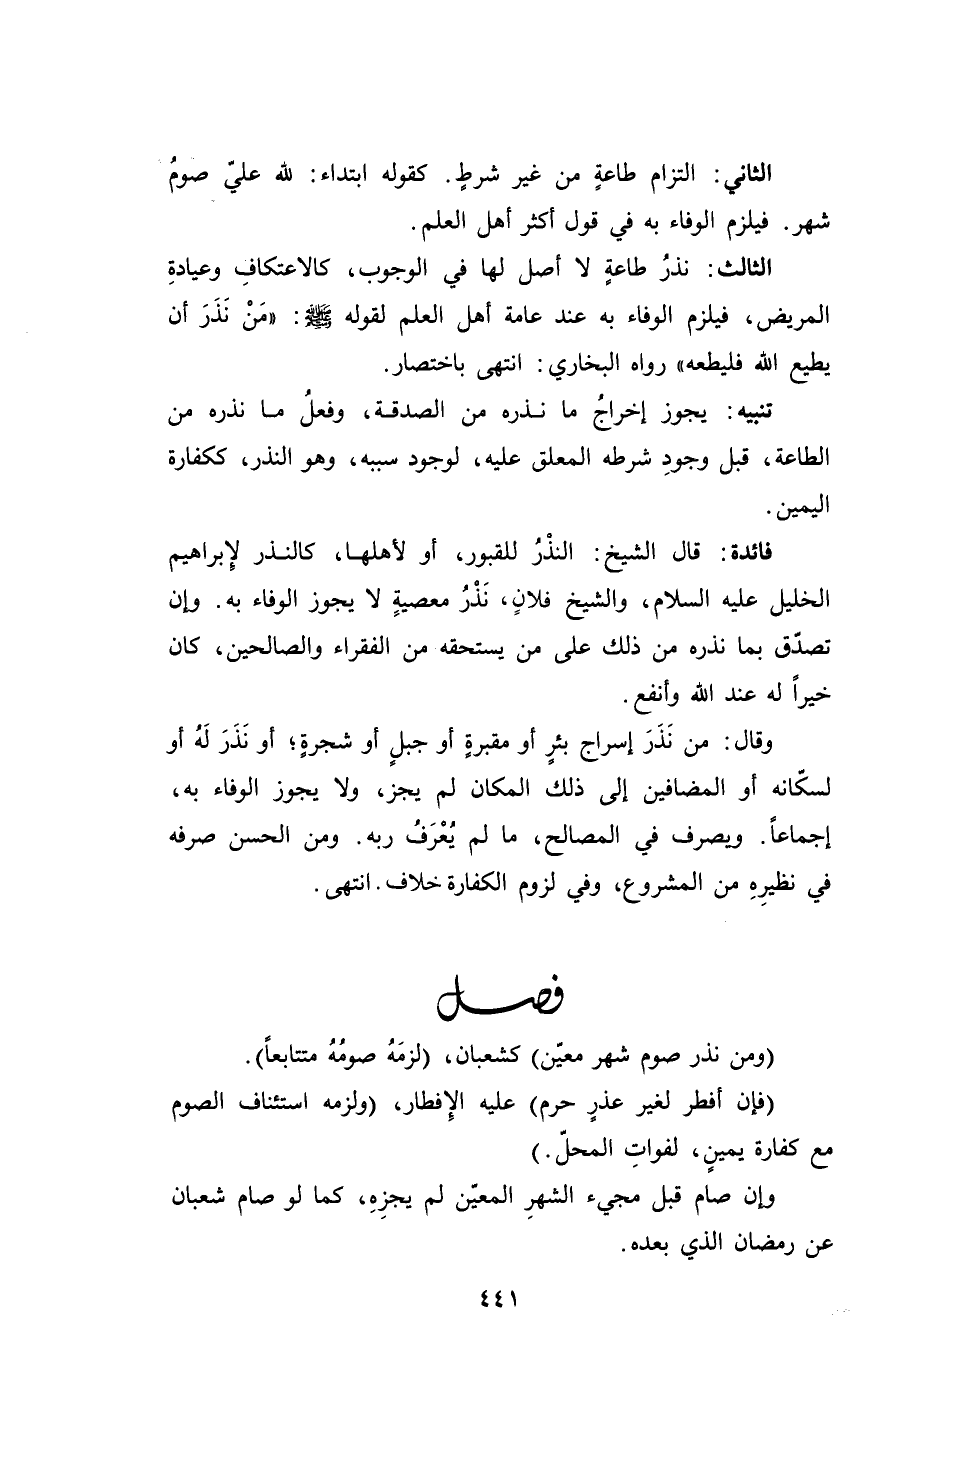 الثاني: التزام طاعةٍ من غير شرطٍ. كقوله ابتداء: لله عليّ صومُ
شهر. فيلزم الوفاء به في قول أكثر أهل العلم.
الثالث: نذرُ طاعةٍ لا أصل لها في الوجوب، كالاعتكافِ وعيادةِ
المريض، فيلزم الوفاء به عند عامة أهل العلم لقوله ﷺ: «مَنْ نَذَرَ أن
يطيع الله فليطعه» رواه البخاري: انتهى باختصار.
تنبيه: يجوز إخراجُ ما نـذره من الصدقـة، وفعلُ مـا نذره من
الطاعة، قبل وجودِ شرطه المعلق عليه، لوجود سببه، وهو النذر، ككفارة
اليمين.
فائدة: قال الشيخ: النذْرُ للقبور، أو لأهلهـا، كالنـذر لإبراهيم
الخليل عليه السلام، والشيخ فلانٍ، نَذْرُ معصيةٍ لا يجوز الوفاء به. وإن
تصدّق بما نذره من ذلك على من يستحقه من الفقراء والصالحين، كان
خيراً له عند الله وأنفع.
وقال: من نَذَرَ إسراج بئرٍ أو مقبرةٍ أو جبلٍ أو شجرةٍ؛ أو نَذَرَ لَهُ أو
لسكّانه أو المضافين إلى ذلك المكان لم يجز، ولا يجوز الوفاء به،
إجماعاً. ويصرف في المصالح، ما لم يُعْرَفُ ربه. ومن الحسن صرفه
في نظيرِهِ من المشروع، وفي لزوم الكفارة خلاف. انتهى.
فصـل
(ومن نذر صوم شهر معيّن) كشعبان، (لزمَهُ صومُهُ متتابعاً).
(فإن أفطر لغير عذرٍ حرم) عليه الإفطار، (ولزمه استئناف الصوم
مع كفارة يمينٍ، لفواتِ المحلّ.)
وإن صام قبل مجيء الشهرِ المعيّن لم يجزِهِ، كما لو صام شعبان
عن رمضان الذي بعده.
٤٤١